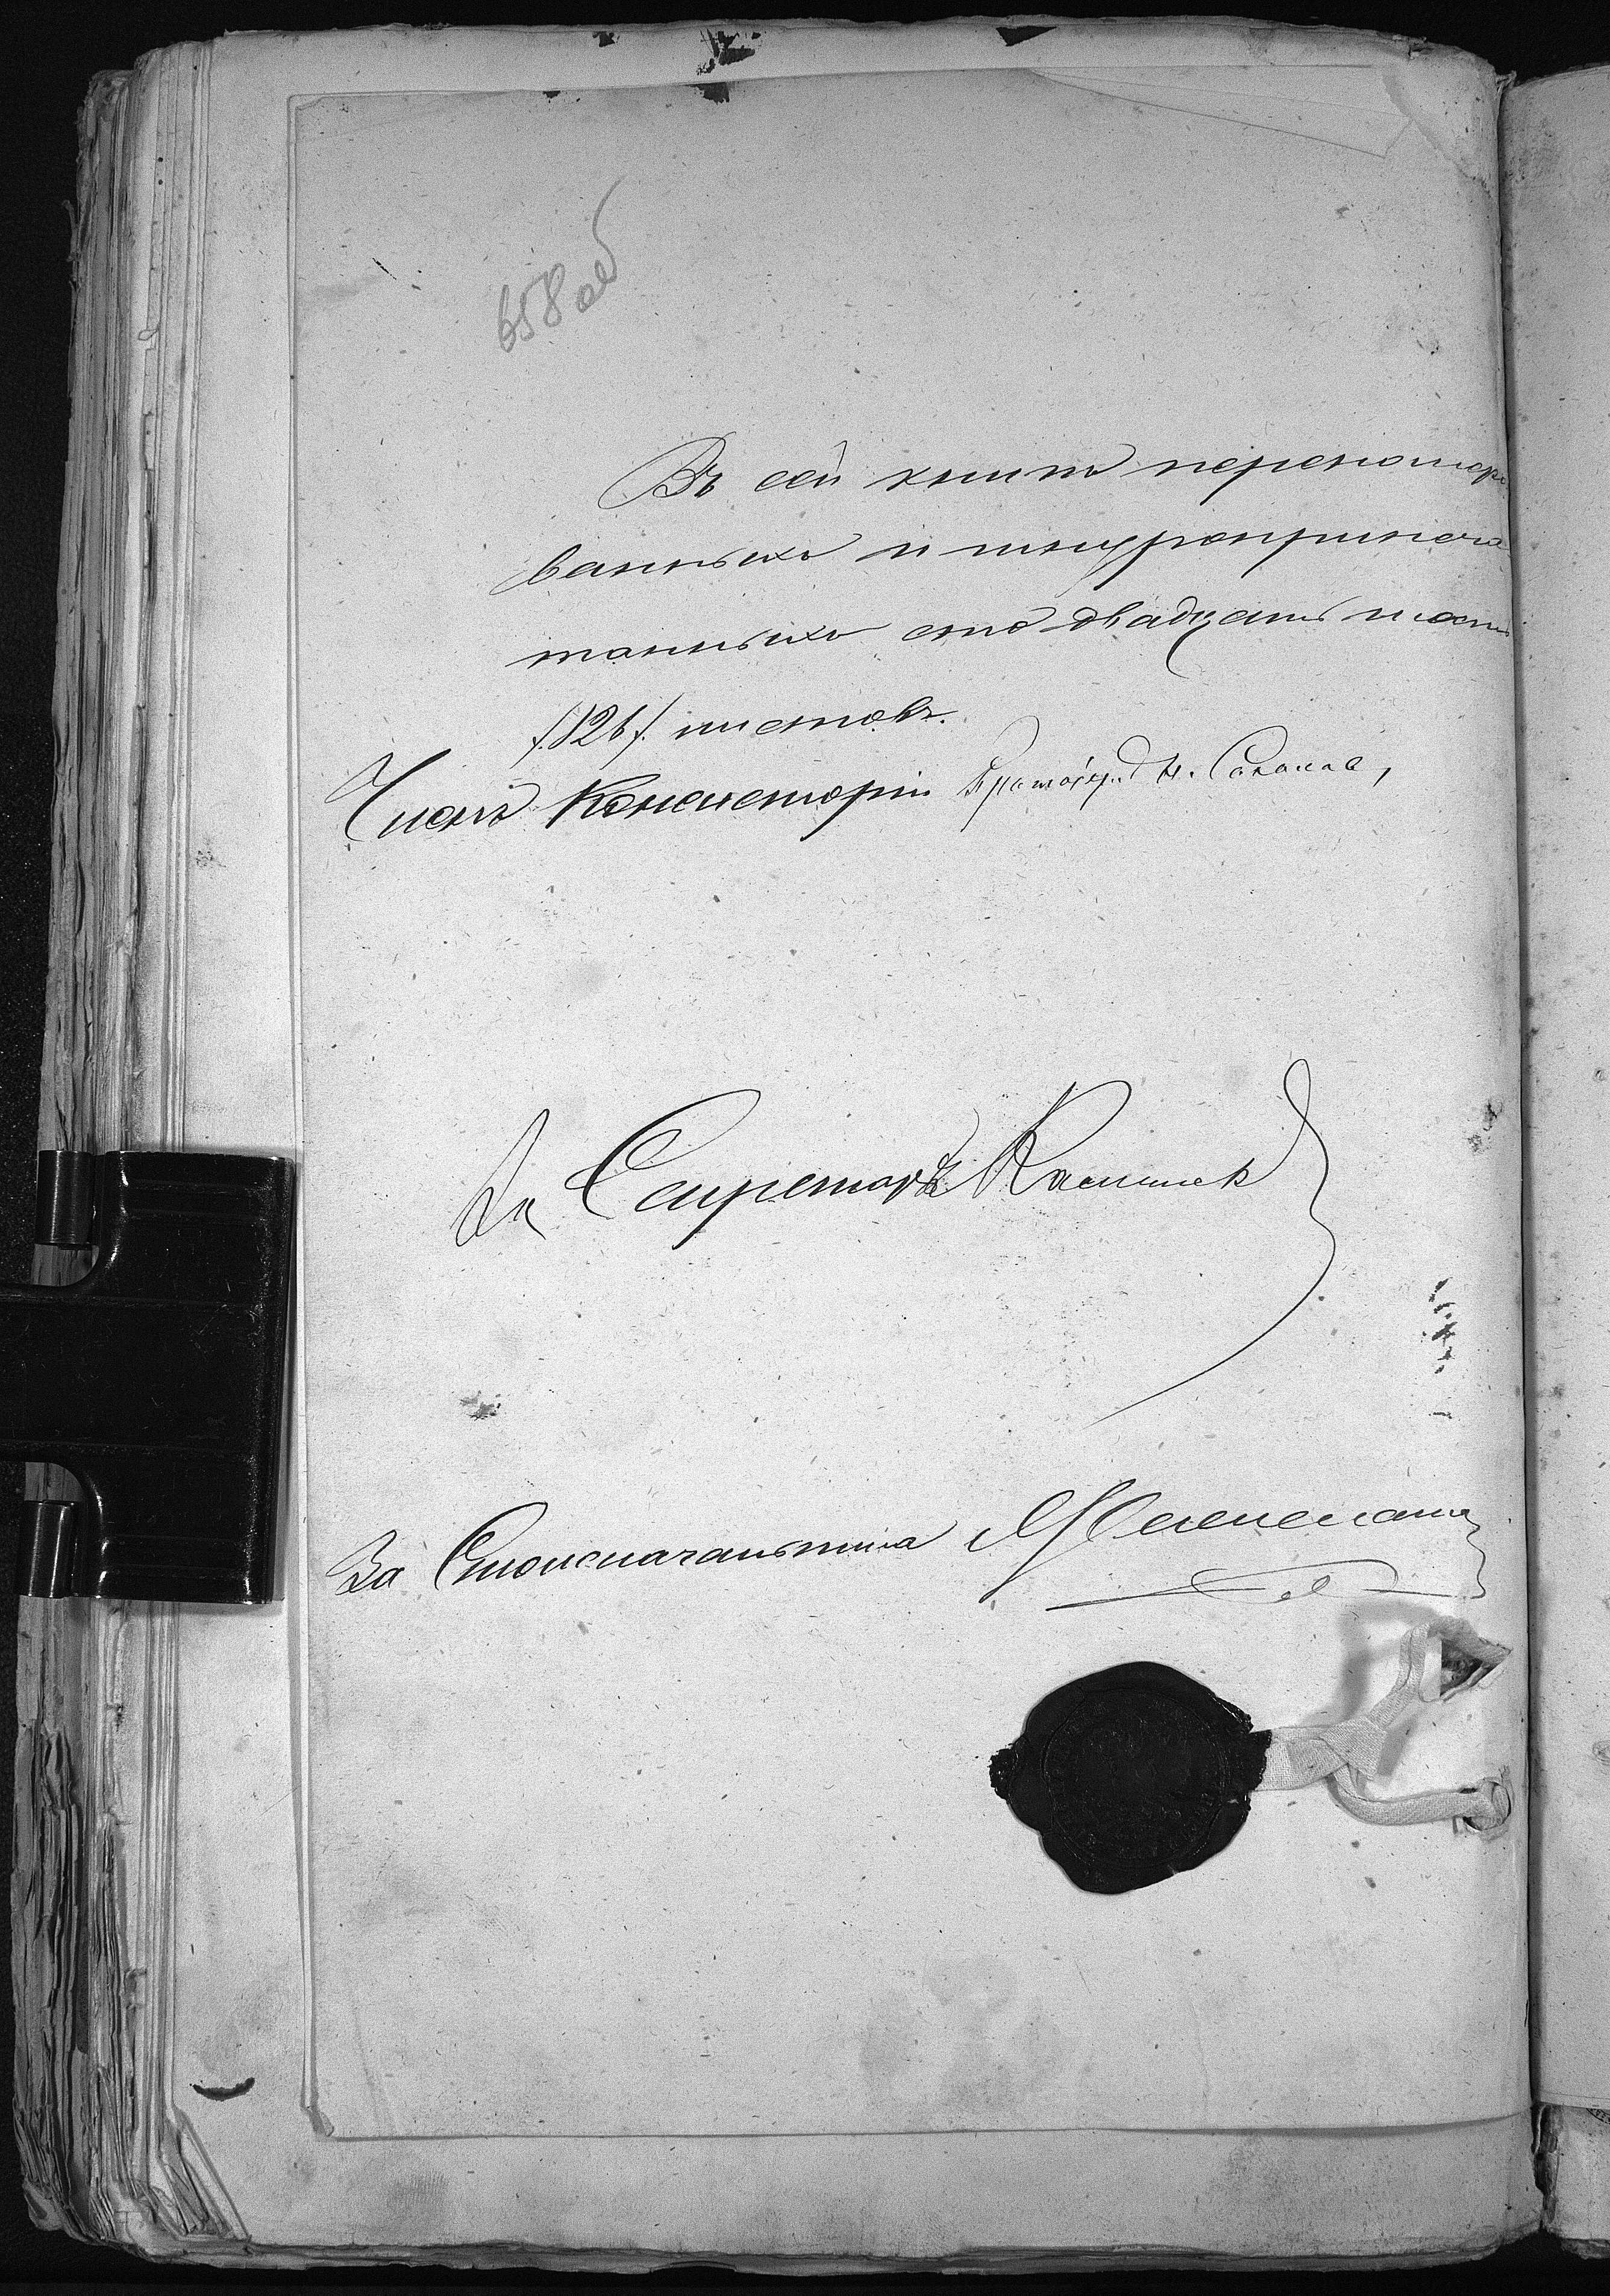 658 об
Въ сей книгѣ перенумеро
ванныхъ и шнуроприпеча
танныхъ сто двадцать шесть
/126/. листовъ.
Членъ Консисторіи
За Секретаря
За Столоначальника